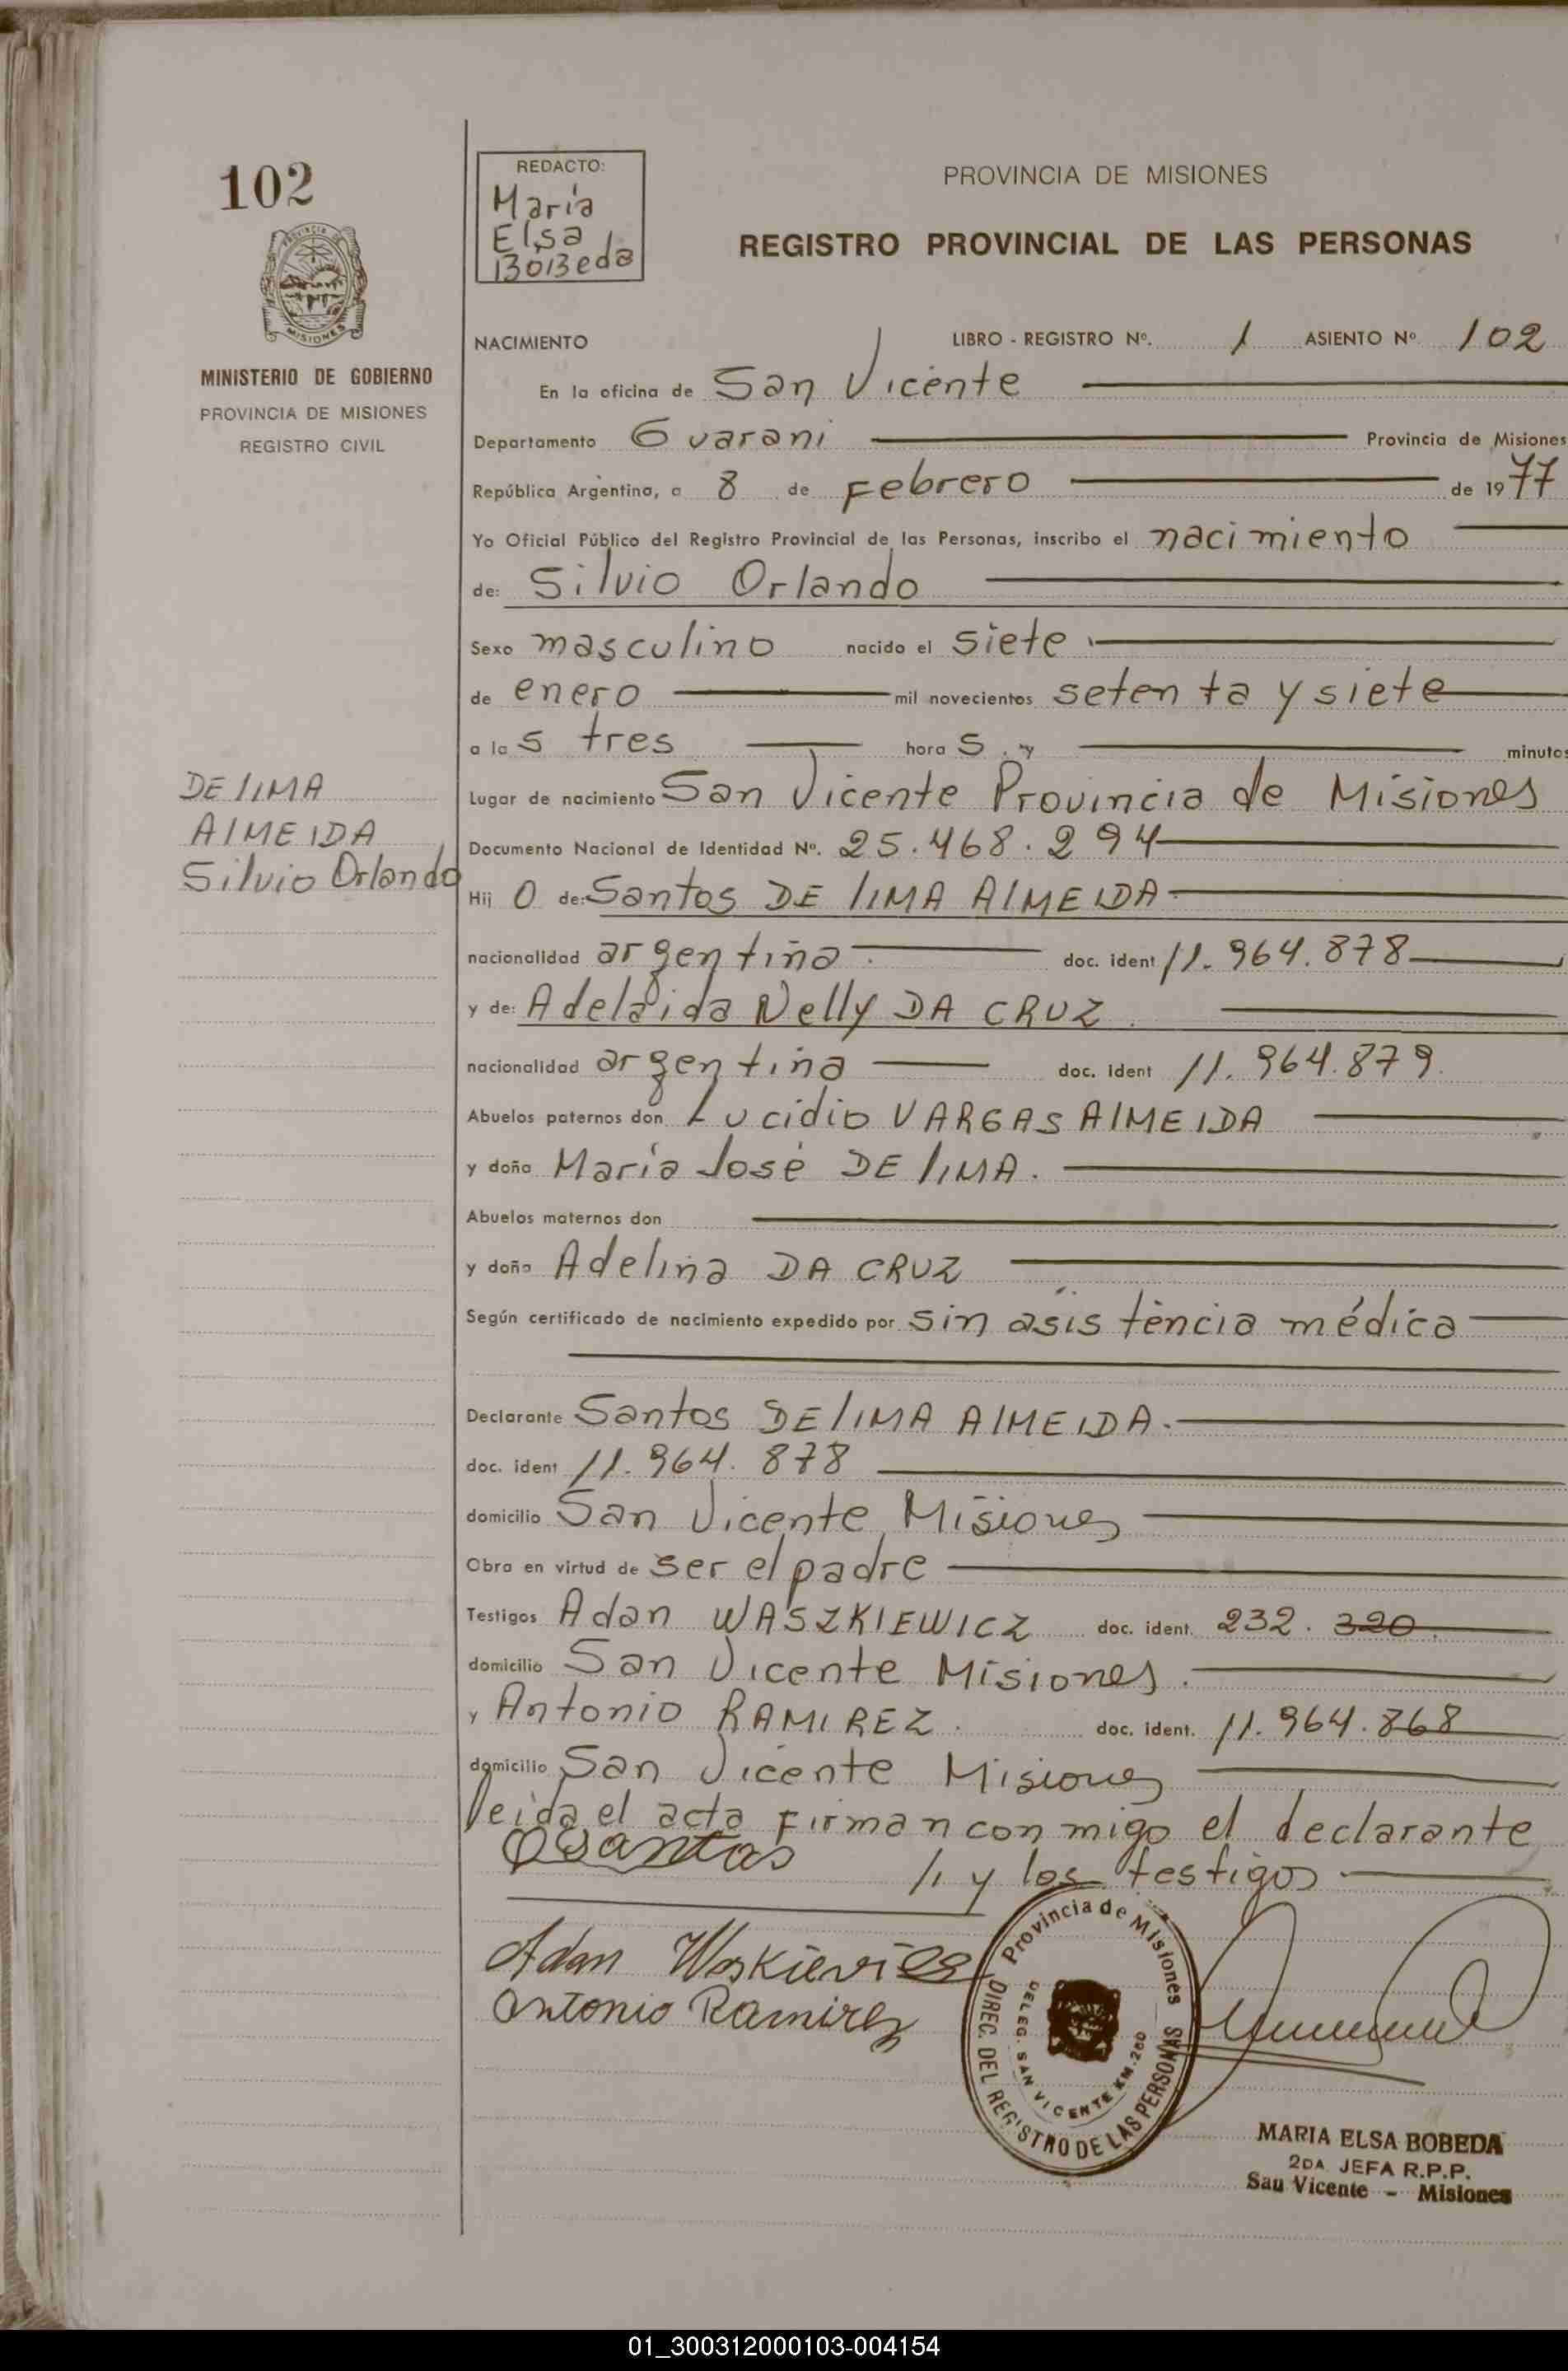 102
REDACTO:
María
Elsa
BoBeda
PROVINCIA DE MISIONES
REGISTRO PROVINCIAL DE LAS PERSONAS
PROVINCIA DE
MISIONES
MINISTERIO DE GOBIERNO
PROVINCIA DE MISIONES
REGISTRO CIVIL
NACIMIENTO LIBRO - REGISTRO Nº. 1 ASIENTO Nº 102
En la oficina de San Vicente
Departamento Guarani Provincia de Misiones
República Argentina, a 8 de Febrero de 1977
Yo Oficial Público del Registro Provincial de las Personas, inscribo el nacimiento
de: Silvio Orlando
Sexo masculino nacido el siete
de enero mil novecientos setenta y siete
a las tres horas y minutos
Lugar de nacimiento San Vicente Provincia de Misiones
Documento Nacional de Identidad Nº. 25.468.294
DE lIMA
AlMEIDA
Silvio Orlando
Hijo de: Santos DE lIMA AlMEIDA
nacionalidad argentina doc. ident 11.964.878
y de: Adelaida Nelly DA CRUZ
nacionalidad argentina doc. ident 11.964.879.
Abuelos paternos don Lucidio VARGAS AlMEIDA
y doña María José DE lIMA.
Abuelos maternos don
y doña Adelina DA CRUZ
Según certificado de nacimiento expedido por sin asistencia médica
Declarante Santos DE lIMA AlMEIDA.
doc. ident 11.964.878
domicilio San Vicente Misiones
Obra en virtud de ser el padre
Testigos Adan WASZKIEWICZ doc. ident. 232.320.
domicilio San Vicente Misiones.
y Antonio RAMIREZ. doc. ident. 11.964.868
domicilio San Vicente Misiones
leida el acta Firman conmigo el declarante
y los testigos
Santos
Adan
Antonio Ramirez
Provincia de Misiones
DIREC. DEL REGISTRO DE LAS PERSONAS
DELEG. SAN VICENTE KM. 260
MARIA ELSA BOBEDA
2DA JEFA R.P.P.
San Vicente - Misiones
01_300312000103-004154